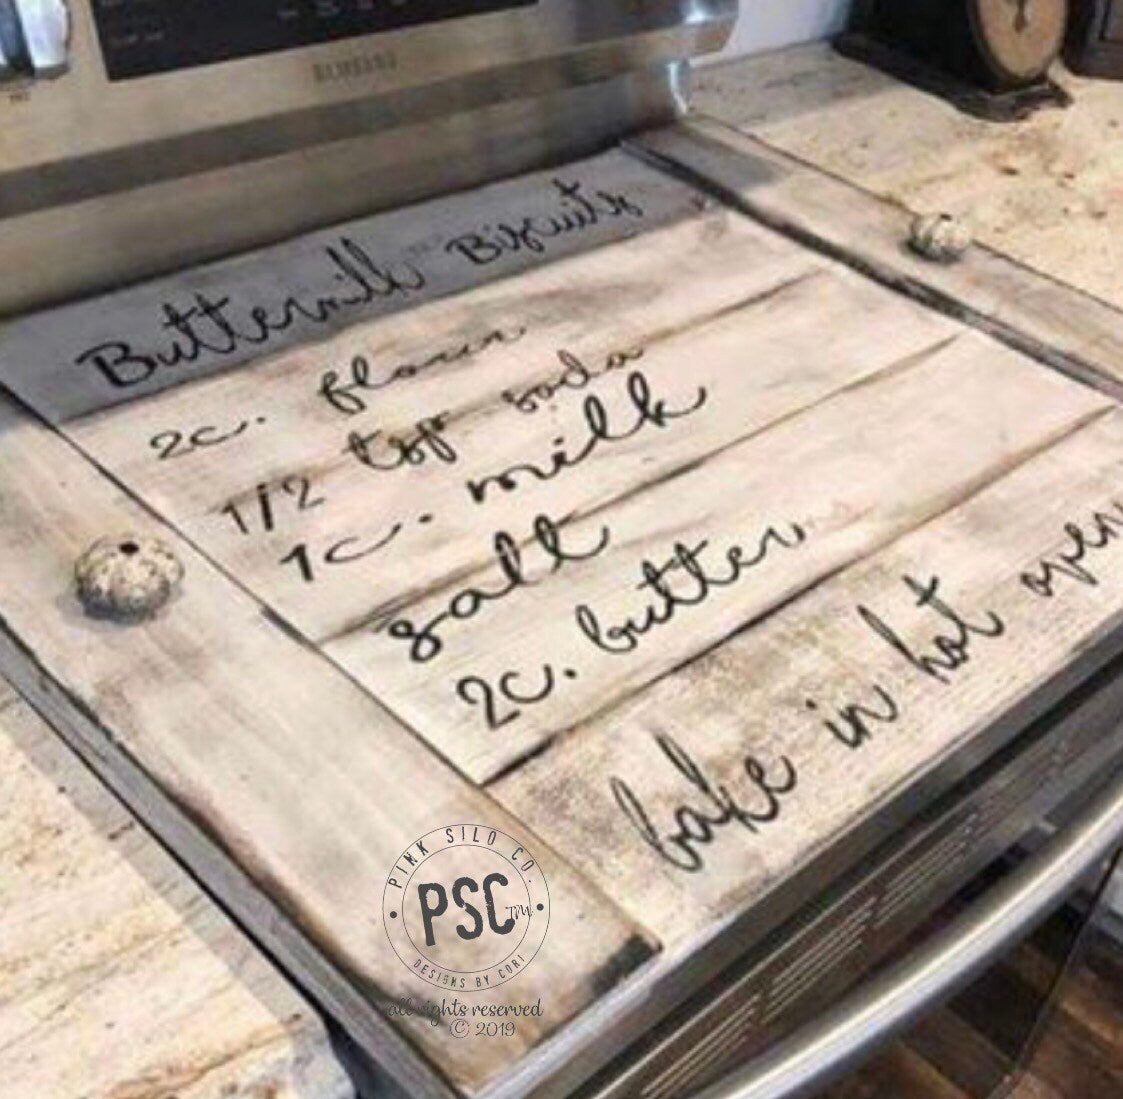 Buttermilk Biscuits
2c. flour
1/2 tsp soda
1c. milk
salt
2c. butter
bake in hot open
PINK SILO CO.
PSC TM
DESIGNS BY CORI
all rights reserved
© 2019